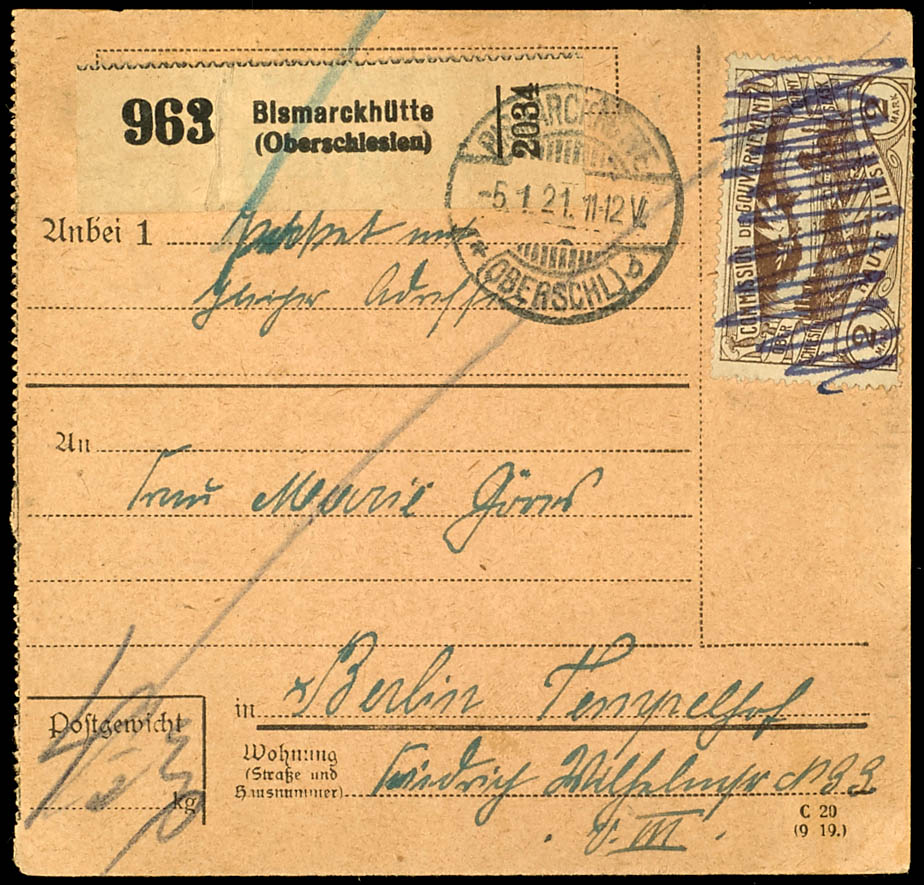 963
Bismarckhütte
(Oberschlesien)
2034
BISMARCKHÜTTE
-5.1.21. 11-12 V.
* (OBERSCHL.) b
COMMISSION DE GOUVERNEMENT
OBER
2 MARK
2 MARK
Anbei 1 Packet mit
heutiger Adresse
An
Frau Marie Görns
in Berlin Tempelhof
Postgewicht
kg
Wohnung
(Straße und
Hausnummer)
Friedrich Wilhelmstr
v. III.
C 20
(9 19.)